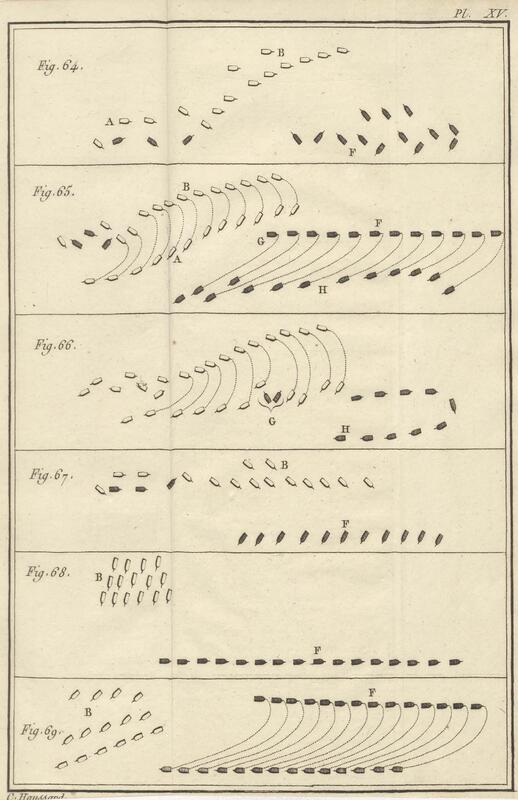 Pl. XV.
Fig. 64.
B
A
F
Fig. 65.
B
F
G
A
H
Fig. 66.
G
H
Fig. 67.
B
F
Fig. 68.
B
F
Fig. 69.
B
F
C. Haussard.